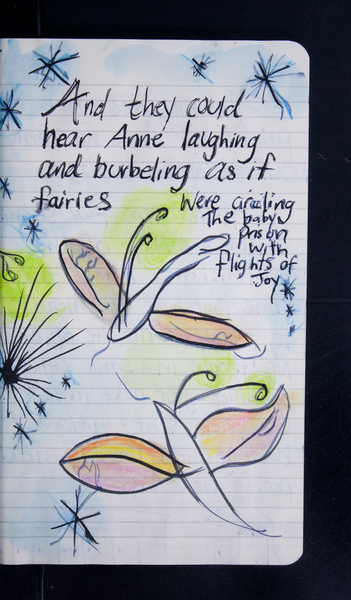 And they could
hear Anne laughing
and burbeling as if
fairies
were circling
The baby
Prison
with
flights of
Joy